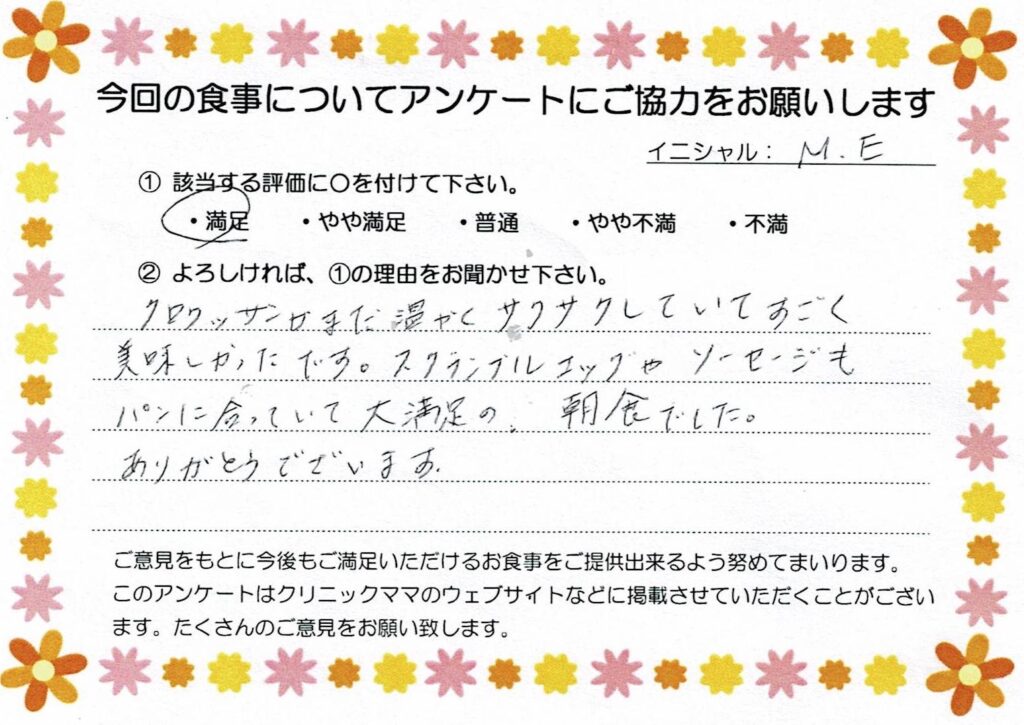 今回の食事についてアンケートにご協力をお願いします
イニシャル： M.E
① 該当する評価に〇を付けて下さい。
・満足 ・やや満足 ・普通 ・やや不満 ・不満
② よろしければ、①の理由をお聞かせ下さい。
クロワッサンがまだ温かくサクサクしていてすごく
美味しかったです。スクランブルエッグや ソーセージも
パンに合っていて大満足の、朝食でした。
ありがとうございます。
ご意見をもとに今後もご満足いただけるお食事をご提供出来るよう努めてまいります。
このアンケートはクリニックママのウェブサイトなどに掲載させていただくことがござい
ます。たくさんのご意見をお願い致します。